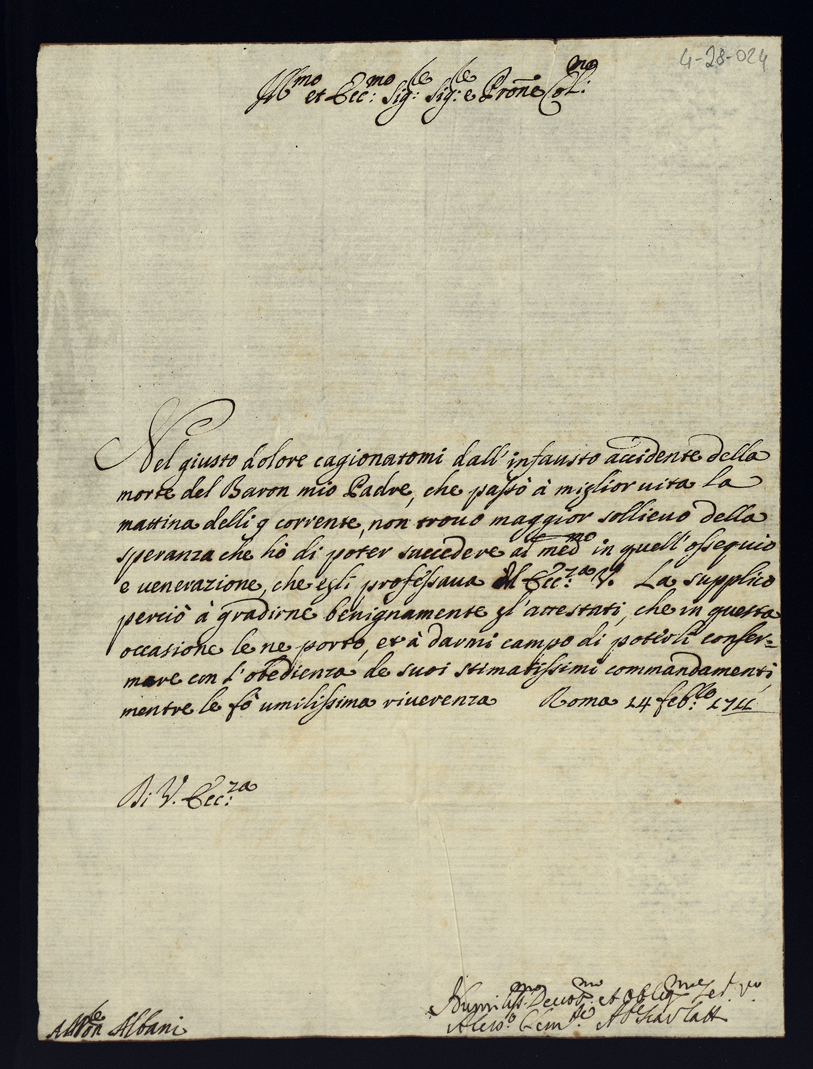 4-28-024
Ill:mo et Ecc:mo Sig:re Sig:re e Pron̄e Col:mo
Nel giusto dolore cagionatomi dall'infausto accidente della
morte del Baron mio Padre, che passò à miglior vita la
mattina delli 9 corrente, non trovo maggior sollievo della
speranza che hò di poter succedere al med.mo in quell'ossequio
e venerazione, che egli professava all'Ecc:za V. La supplico
perciò à gradirne benignamente gl'attestati, che in questa
occasione le ne porto, et à darmi campo di poterli confer=
mare con l'obedienza de suoi stimatissimi commandamenti
mentre le fò umilissima riverenza Roma 14 feb:ro 1711
Di V. Ecc:za
Humiliss:mo Devot:mo et Oblig:mo
Albani